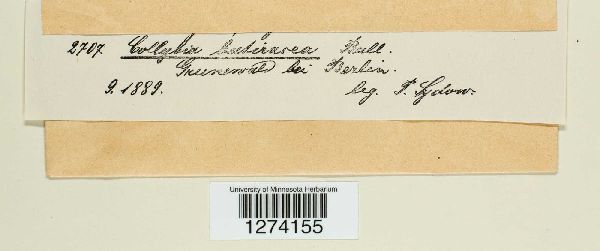 2707. Collybia butiracea Bull.
Grunewald bei Berlin.
9. 1889. leg. P. Sydow.
University of Minnesota Herbarium
1274155